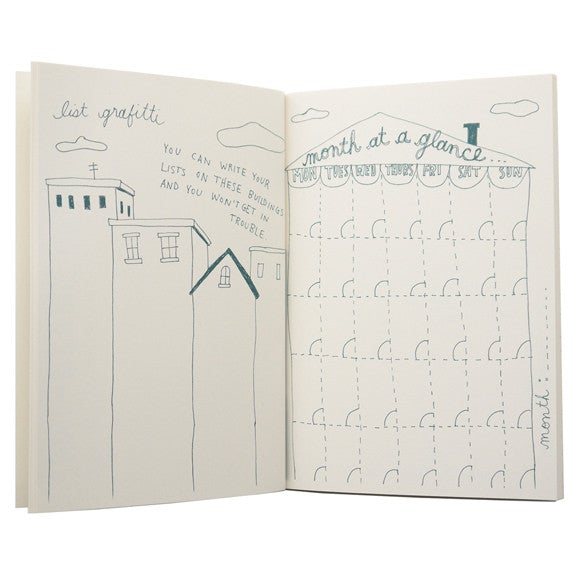 list grafitti
YOU CAN WRITE YOUR
LISTS ON THESE BUILDINGS
AND YOU WON'T GET IN
TROUBLE
month at a glance...
MON TUES WED THURS FRI SAT SUN
month: